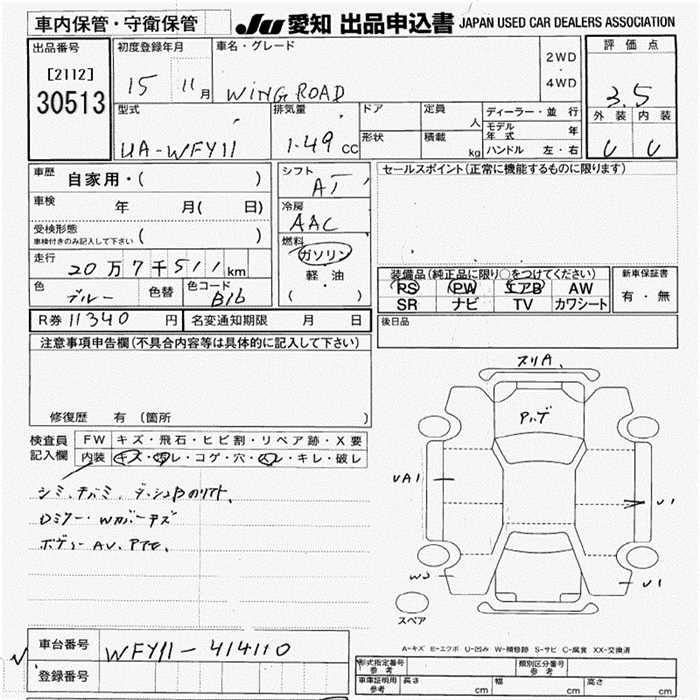 車内保管・守衛保管
JU 愛知 出品申込書 JAPAN USED CAR DEALERS ASSOCIATION
出品番号
[2112]
30513
初度登録年月
15 11月
車名・グレード
WiNG ROAD
2WD
・
4WD
評価点
3.5
外装 内装
型式
UA-WFY11
排気量
1.49 cc
ドア
形状
定員 人
積載 kg
ディーラー・並行
モデル年式 年
ハンドル 左・右
車歴 自家用・( )
車検 年 月( 日)
受検形態 ( )
車検付きのみ記入して下さい
走行 20万7千511km
色 ブルー 色替 色コード B16
シフト AT
冷房 AAC
燃料
ガソリン
軽・油
( )
セールスポイント(正常に機能するものに限ります)
装備品(純正品に限り○をつけてください)
PS PW エアB AW
SR ナビ TV カワシート
新車保証書
有・無
後日品
R券 11340 円 名変通知期限 月 日
注意事項申告欄(不具合内容等は具体的に記入して下さい)
修復歴 有 (箇所 )
検査員記入欄
FW キズ・飛石・ヒビ割・リペア跡・X要
内装 キズ・汚レ・コゲ・穴・スレ・キレ・破レ
スリA.
UA1
U1
W2
U1
スペア
A-キズ E-エクボ U-凹み W-補修跡 S-サビ C-腐食 XX-交換済
車台番号 WFY11-414110
登録番号
型式指定番号 参考
類別区分番号 参考
車庫証明用 参考 長さ cm 幅 cm 高さ cm